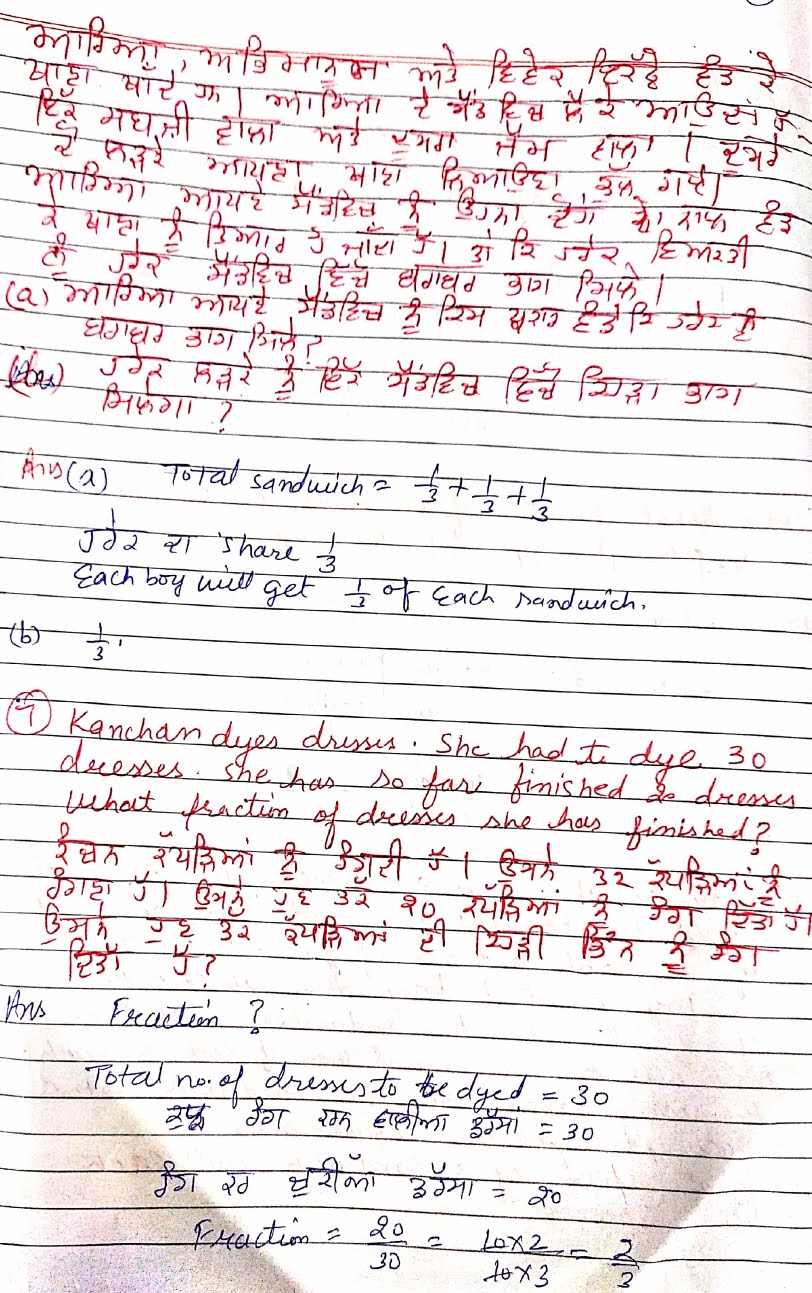 ਆਰਿਆ, ਅਭਿਮਾਨਯੂ ਅਤੇ ਵਿਵੇਕ ਇਕੱਠੇ ਵੰਡ ਕੇ
ਖਾਣਾ ਖਾਂਦੇ ਹਨ। ਆਰਿਆ ਦੋ ਸੈਂਡਵਿਚ ਲੈ ਕੇ ਆਉਂਦਾ ਹੈ
ਇੱਕ ਸਬਜ਼ੀ ਵਾਲਾ ਅਤੇ ਦੂਸਰਾ ਜੈਮ ਵਾਲਾ। ਦੂਸਰੇ
ਦੋ ਲੜਕੇ ਆਪਣਾ ਖਾਣਾ ਲਿਆਉਣਾ ਭੁੱਲ ਗਏ।
ਆਰਿਆ ਆਪਣੇ ਸੈਂਡਵਿਚ ਨੂੰ ਉਹਨਾਂ ਦੋਨਾਂ ਦੇ ਨਾਲ ਵੰਡ
ਕੇ ਖਾਣਾ ਨੂੰ ਤਿਆਰ ਹੋ ਜਾਂਦਾ ਹੈ। ਤਾਂ ਕਿ ਹਰੇਕ ਵਿਅਕਤੀ
ਨੂੰ ਹਰੇਕ ਸੈਂਡਵਿਚ ਵਿੱਚੋਂ ਬਰਾਬਰ ਭਾਗ ਮਿਲੇ।
(a) ਆਰਿਆ ਆਪਣੇ ਸੈਂਡਵਿਚ ਨੂੰ ਕਿਸ ਪ੍ਰਕਾਰ ਵੰਡੇ ਕਿ ਹਰੇਕ ਨੂੰ
ਬਰਾਬਰ ਭਾਗ ਮਿਲੇ?
ਹਰੇਕ ਲੜਕੇ ਨੂੰ ਇੱਕ ਸੈਂਡਵਿਚ ਵਿੱਚੋਂ ਕਿਹੜਾ ਭਾਗ
ਮਿਲੇਗਾ?
Ans (a) Total sandwich = 1/3 + 1/3 + 1/3
ਹਰੇਕ ਦਾ share 1/3
Each boy will get 1/3 of each sandwich.
(b) 1/3.
7 Kanchan dyes dresses. She had to dye 30
dresses. She has so far finished 20 dresses
What fraction of dresses she has finished?
ਕੰਚਨ ਕੱਪੜਿਆਂ ਨੂੰ ਰੰਗਦੀ ਹੈ। ਉਸਨੇ 30 ਕੱਪੜਿਆਂ ਨੂੰ
ਰੰਗਣਾ ਹੈ। ਉਸਨੇ ਹੁਣ ਤੱਕ 20 ਕੱਪੜਿਆਂ ਨੂੰ ਰੰਗ ਦਿੱਤਾ ਹੈ।
ਉਸਨੇ ਹੁਣ ਤੱਕ ਕੱਪੜਿਆਂ ਦੀ ਕਿਹੜੀ ਭਿੰਨ ਨੂੰ ਰੰਗ
ਦਿੱਤਾ ਹੈ?
Ans Fraction ?
Total no. of dresses to be dyed = 30
ਰੰਗ ਕਰਨ ਵਾਲੀਆਂ ਡਰੈੱਸਾਂ = 30
ਰੰਗ ਕਰ ਚੁਕੀਆਂ ਡਰੈੱਸਾਂ = 20
Fraction = 20/30 = 10×2/10×3 = 2/3